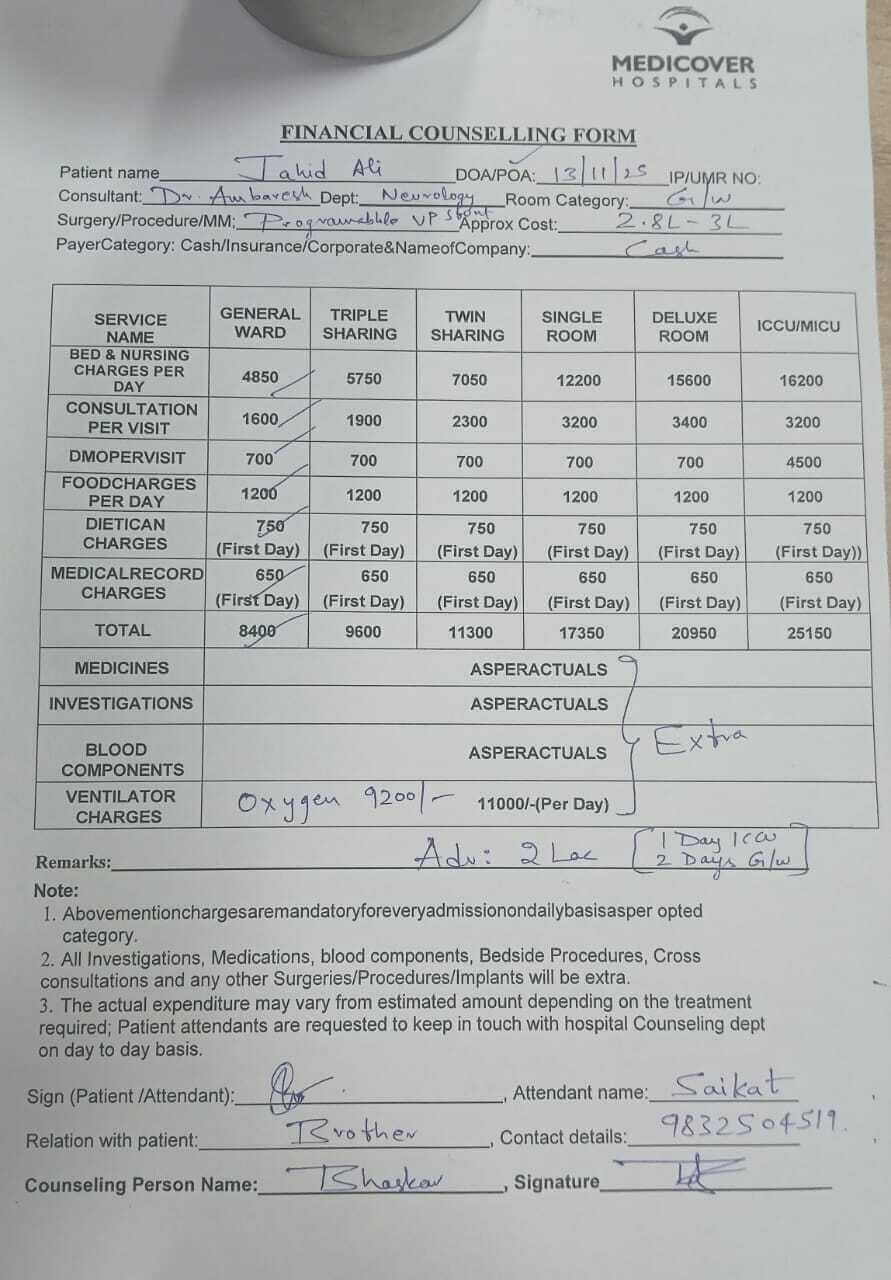 MEDICOVER
HOSPITALS
FINANCIAL COUNSELLING FORM
Patient name Jahid Ali DOA/POA: 13/11/25 IP/UMR NO:
Consultant: Dr. Ambaresh Dept: Neurology Room Category: G/W
Surgery/Procedure/MM; Programabble VP Shunt Approx Cost: 2.8L - 3L
PayerCategory: Cash/Insurance/Corporate&NameofCompany: Cash
SERVICE NAME GENERAL WARD TRIPLE SHARING TWIN SHARING SINGLE ROOM DELUXE ROOM ICCU/MICU
BED & NURSING CHARGES PER DAY 4850 5750 7050 12200 15600 16200
CONSULTATION PER VISIT 1600 1900 2300 3200 3400 3200
DMOPERVISIT 700 700 700 700 700 4500
FOODCHARGES PER DAY 1200 1200 1200 1200 1200 1200
DIETICAN CHARGES 750 (First Day) 750 (First Day) 750 (First Day) 750 (First Day) 750 (First Day) 750 (First Day))
MEDICALRECORD CHARGES 650 (First Day) 650 (First Day) 650 (First Day) 650 (First Day) 650 (First Day) 650 (First Day)
TOTAL 8400 9600 11300 17350 20950 25150
MEDICINES ASPERACTUALS
INVESTIGATIONS ASPERACTUALS
Extra
BLOOD COMPONENTS ASPERACTUALS
VENTILATOR CHARGES Oxygen 9200/- 11000/-(Per Day)
Remarks: Adv: 2 Lac [1 Day ICU
2 Days G/W]
Note:
1. Abovementionchargesaremandatoryforeveryadmissionondailybasisasper opted
category.
2. All Investigations, Medications, blood components, Bedside Procedures, Cross
consultations and any other Surgeries/Procedures/Implants will be extra.
3. The actual expenditure may vary from estimated amount depending on the treatment
required; Patient attendants are requested to keep in touch with hospital Counseling dept
on day to day basis.
Sign (Patient /Attendant): , Attendant name: Saikat
Relation with patient: Brother , Contact details: 9832504519.
Counseling Person Name: Bhaskar , Signature